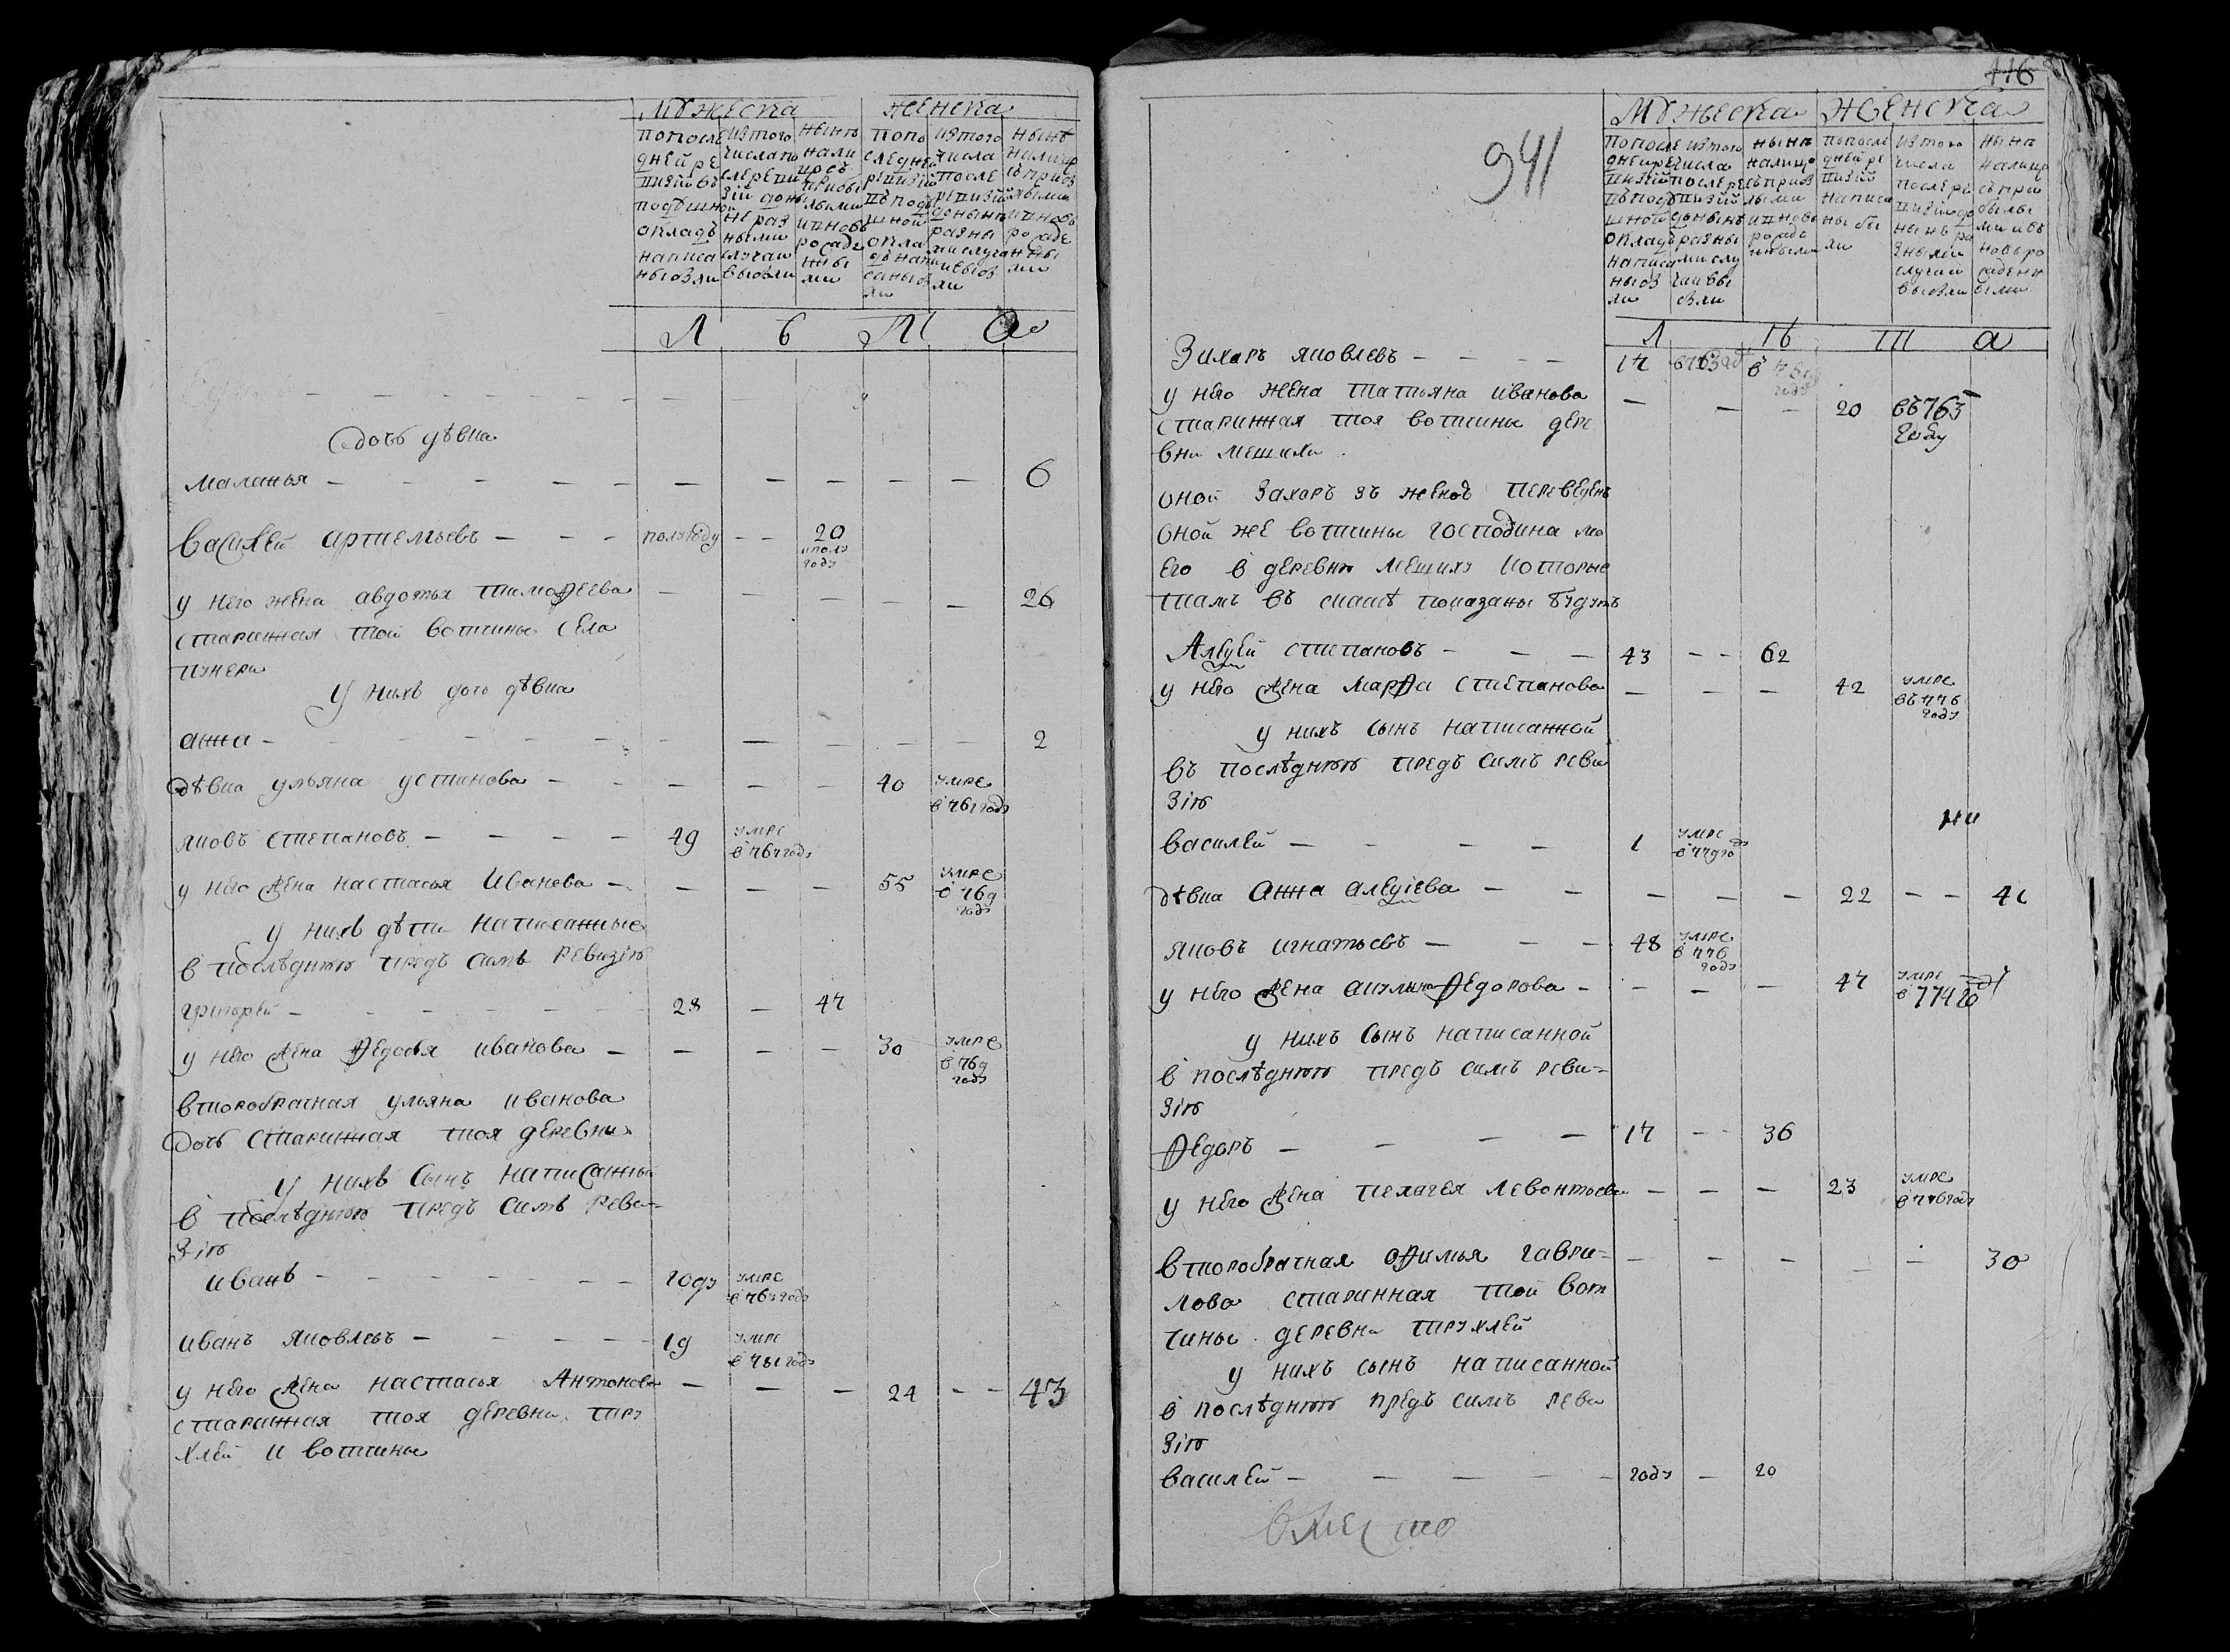 мужеска женска
попосле
дней ре
визіи въ
подушной
окладъ
написа
ны были
изтого
числа по
сле реви
зіи до ны
не раз
ными
случаи
выбыли
нынѣ
нали
цо съ
прибы
лыми
и вновь
рожде
нны
ми
попо
следней
ревизіи
въ поду
шной
окла
дъ напи
саны бы
ли
изтого
числа
после
ревизіи
до нынѣ
разны
ми случа
и выбы
ли
нынѣ
налицо
съ прибы
лыми
и вновь
рожде
нны
ми
Л ѣ т а
дочь дѣвка
маланья — — — 6
василей артемьевъ — — — полугоду — — 20
и полу
году
у него жена авдотья тимофеева — — — — — 26
старинная той вотчины села
пунери
у нихъ дочь дѣвка
анна — — — — — 2
дѣвка ульяна устинова — — — — 40 умре
в 761 году
яковъ степановъ — — — 49 умре
в 767 году
у него жена настасья иванова — — — — 55 умре
в 769
году
у нихъ дѣти написанные
в послѣднюю предъ симъ ревизію
григорей — — — 28 — 47
у него жена федосья иванова — — — — 30 умре
в 769
году
второбрачная ульяна иванова
дочь старинная тоя деревни
у нихъ сынъ написанный
в послѣднюю предъ симъ реви-
зію
иванъ — — — году умре
в 763 году
иванъ яковлевъ — — — 19 умре
в 781 году
у него жена настасья Антонова — — — 24 — — 43
старинная тоя деревни пру
хлей и вотчины
116
941
мужеска женска
попосле
дней ре
визіи
въ поду
шной
окладъ
написа
ны бы
ли
изтого
числа
после ре
визіи
до нынѣ
разны
ми слу
чаи вы
были
нынѣ
налицо
съ приб
лыми
и вновь
рожде
нными
попосле
дней ре
визіи
написа
ны бы
ли
изтого
числа
после ре
визіи до
нынѣ ра
зными
случаи
выбыли
нынѣ
налицо
съ при
былы
ми и въ
новь ро
жденн
ыми
Л ѣ т а
Захаръ яковлевъ — — — 17 в 763 году
у него жена татьяна иванова — — — 20 въ 763
году
старинная тоя вотчины дере
вни мешихи
оной Захаръ зъ женою переведенъ
оной же вотчины господина мо
его в деревню мешиху которые
тамъ въ сказкѣ показаны будутъ
Алексей степановъ — — — 43 — — 62
у него жена марфа степанова — — — 42 умре
въ 776
году
у нихъ сынъ написанной
въ послѣднюю предъ симъ реви
зію
василей — — — — 1 умре
в 779 году
дѣвка анна алексiева — — — — — 22 — — 41
яковъ игнатьевъ — — — 48 умре
в 776
году
у него жена акулина федорова — — — — 47 умре
в 774 году
у нихъ сынъ написанной
в послѣднюю предъ симъ реви-
зію
федоръ — — — — 17 — — 36
у него жена пелагея левонтьева — — — 23 умре
в 776 году
второбрачная офимья гаври- — — — — — 30
лова старинная той вот
чины деревни прухлей
у нихъ сынъ написанной
в послѣднюю предъ симъ реви
зію
василей — — — — году — 20
вместо